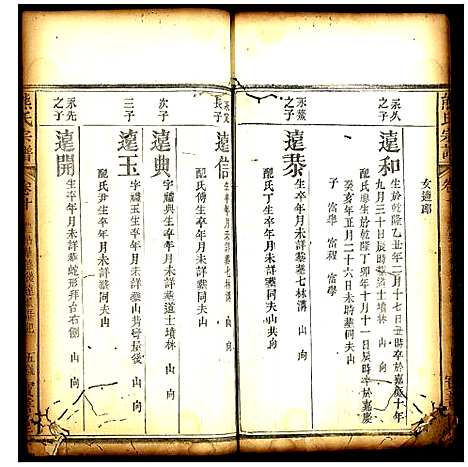 熊氏宗譜
女適郎
永久之子
遠和
生於乾隆乙丑年二月十七日丑時卒於嘉慶十年
九月三十日辰時葬道士墳林 山 向
配氏廖生於乾隆丁卯年十月十一日辰時卒於嘉慶
癸亥年正月二十六日未時葬同夫山 向
子 富學 富程 富學
之子
遠恭
生卒年月未詳葬七林溝 山 向
配氏丁生卒年月未詳葬同夫山共向
長子
遠信
生卒年月未詳葬七林溝 山 向
配氏傅生卒年月未詳葬同夫山 向
次子
遠典
字禮 生卒年月未詳葬道士墳林 山 向
三子
遠玉
字禮玉生卒年月未詳葬山 母墓後 山 向
配氏尹生卒年月未詳葬同夫山 向
永先之子
遠開
生卒年月未詳葬蛇形拜台右側 山 向
熊氏宗譜
卷十